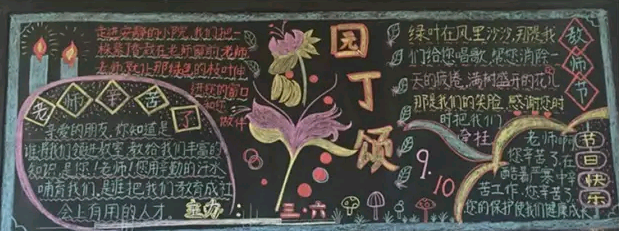 走进安静的小院,我们把一
老师
园丁颂
绿叶在风里沙沙,那是我
们给您唱歌,帮您消除一
天的疲倦,满树盛开的花儿
那是我们的笑脸,感谢您时
时把我们
牵挂
教师节
老师辛苦了
亲爱的朋友,你知道是
谁将我们领进教室,教给我们丰富的
知识,是您!老师!您用辛勤的汗水
哺育我们,是谁把我们教育成社
会上有用的人才.
主办:
三.六
9.10
老师啊
您辛苦了,在
酷暑严寒中辛
苦工作,您辛苦了
您的保护使我们健康成长
节日快乐